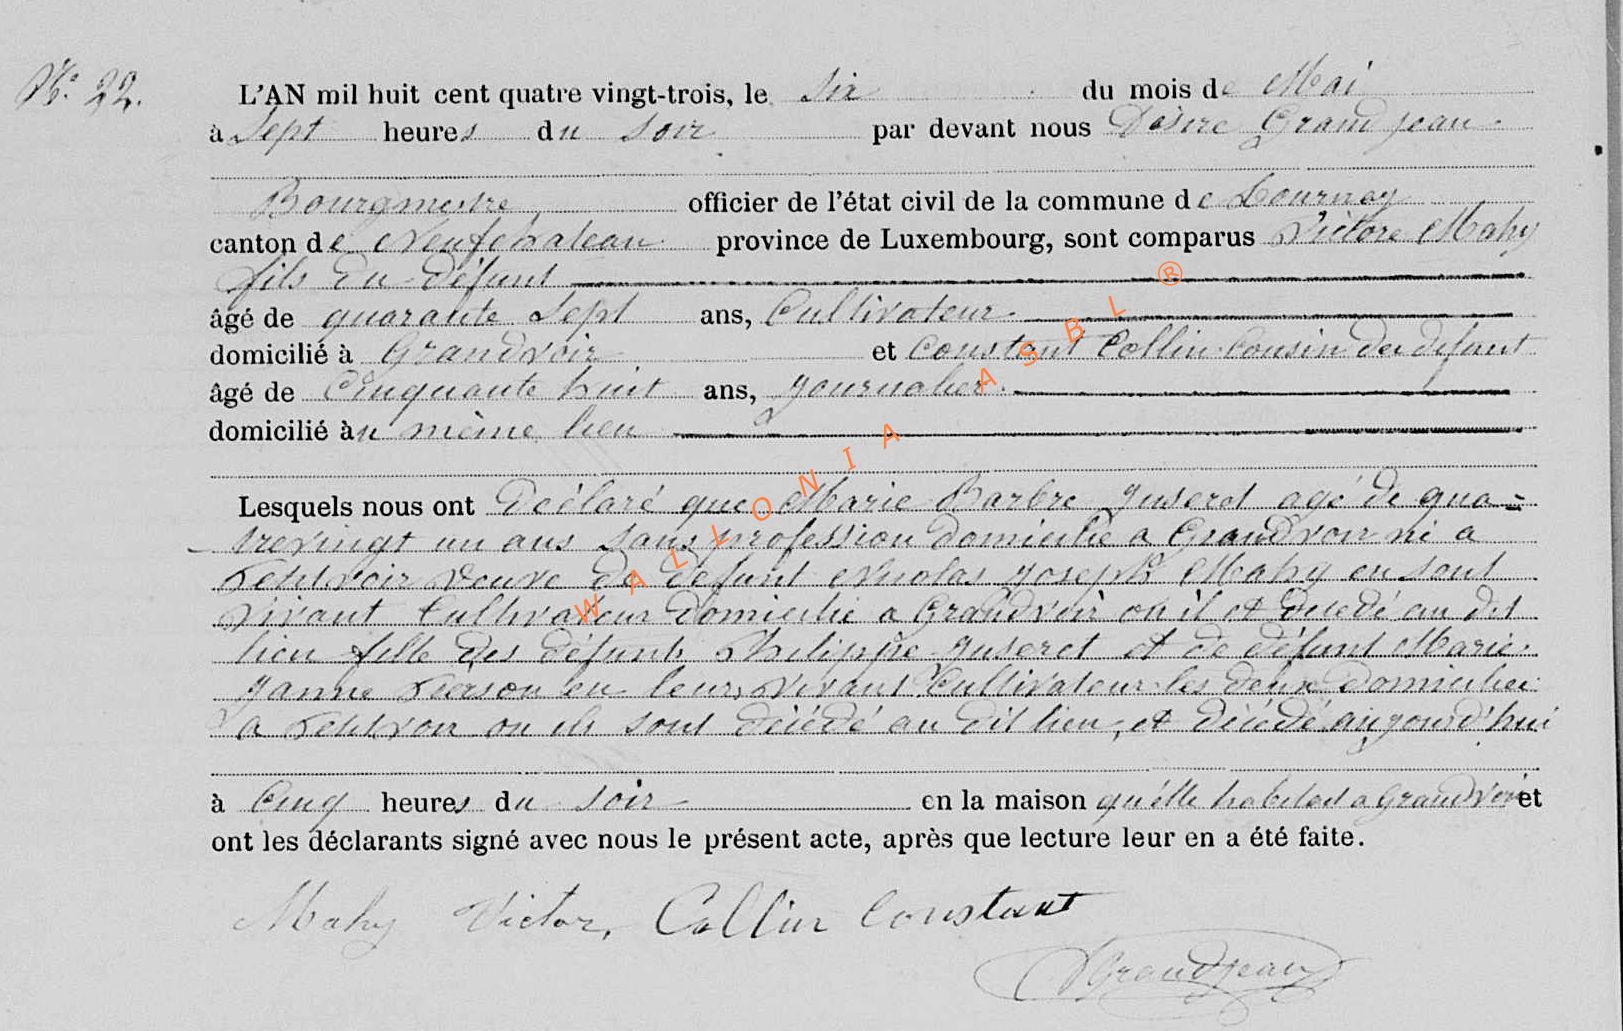 N° 22.
L'AN mil huit cent quatre vingt-trois, le six du mois de Mai
à Sept heures du soir par devant nous Désiré Grandjean
Bourgmestre officier de l'état civil de la commune de Tournay
canton de Neufchateau province de Luxembourg, sont comparus Victore Mahy
fils du défunt
âgé de quarante Sept ans, Cultivateur
domicilié à Grandvoir et Constant Collin Cousin du défunt
âgé de Cinquante huit ans, journalier
domicilié au même lieu
Lesquels nous ont Déclaré que Marie Barbre Juseret agé de qua=
trevingt un ans sans profession domicilié a Grandvoir né a
Petitvoir veuve de défunt Nicolas Joseph Mahy en sont
vivant Cultivateur domicilié a Grandvoir ou il et décedé au dit
lieu fille des défunts Philippe Juseret et de défunt Marie
Janne Pierson en leurs vivant Cultivateur les deux domicilier
a Petitvoir ou ils sont décédé au dit lieu, et décédé aujourd'hui
à Cinq heures du soir en la maison qu'élle habitait a Grandvoir et
ont les déclarants signé avec nous le présent acte, après que lecture leur en a été faite.
Mahy Victor, Collin Constant
DGrandjean
WALLONIA ASBL ®